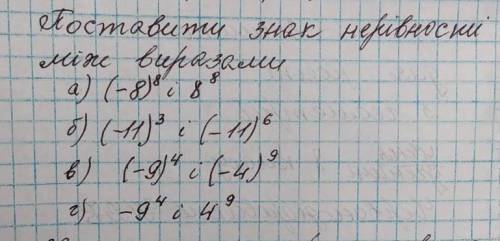 Поставити знак нерівності
між виразами
а) (-8)⁸ і 8⁸
б) (-11)³ і (-11)⁶
в) (-9)⁴ і (-4)⁹
г) -9⁴ і 4⁹